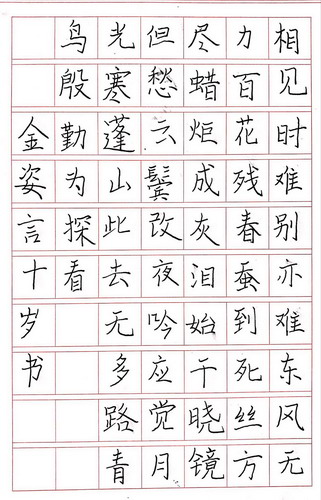 相见时难别亦难东风无
力百花残春蚕到死丝方
尽蜡炬成灰泪始干晓镜
但愁云鬓改夜吟应觉月
光寒蓬山此去无多路青
鸟殷勤为探看
金姿言十岁书